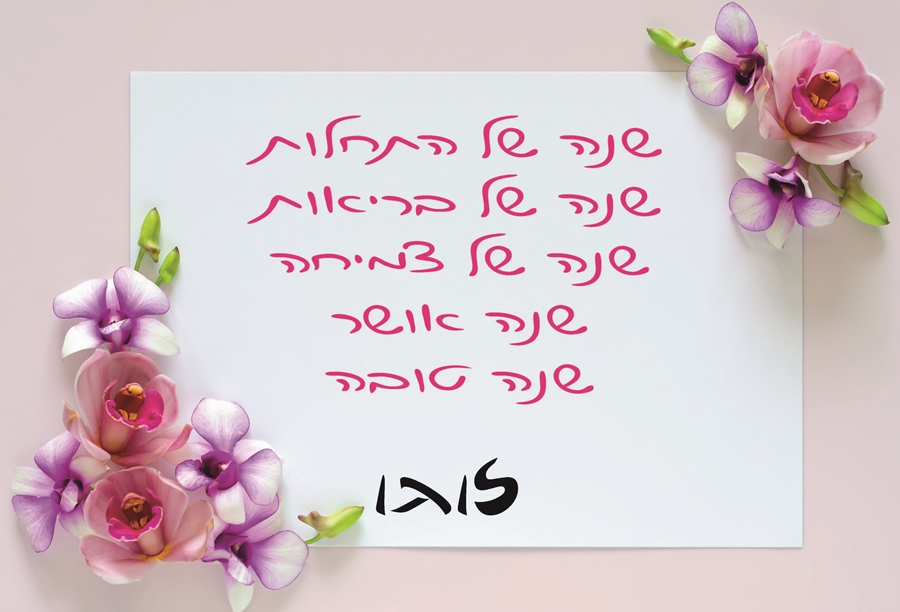 שנה של התחלות
שנה של בריאות
שנה של צמיחה
שנה אושר
שנה טובה
לוגו